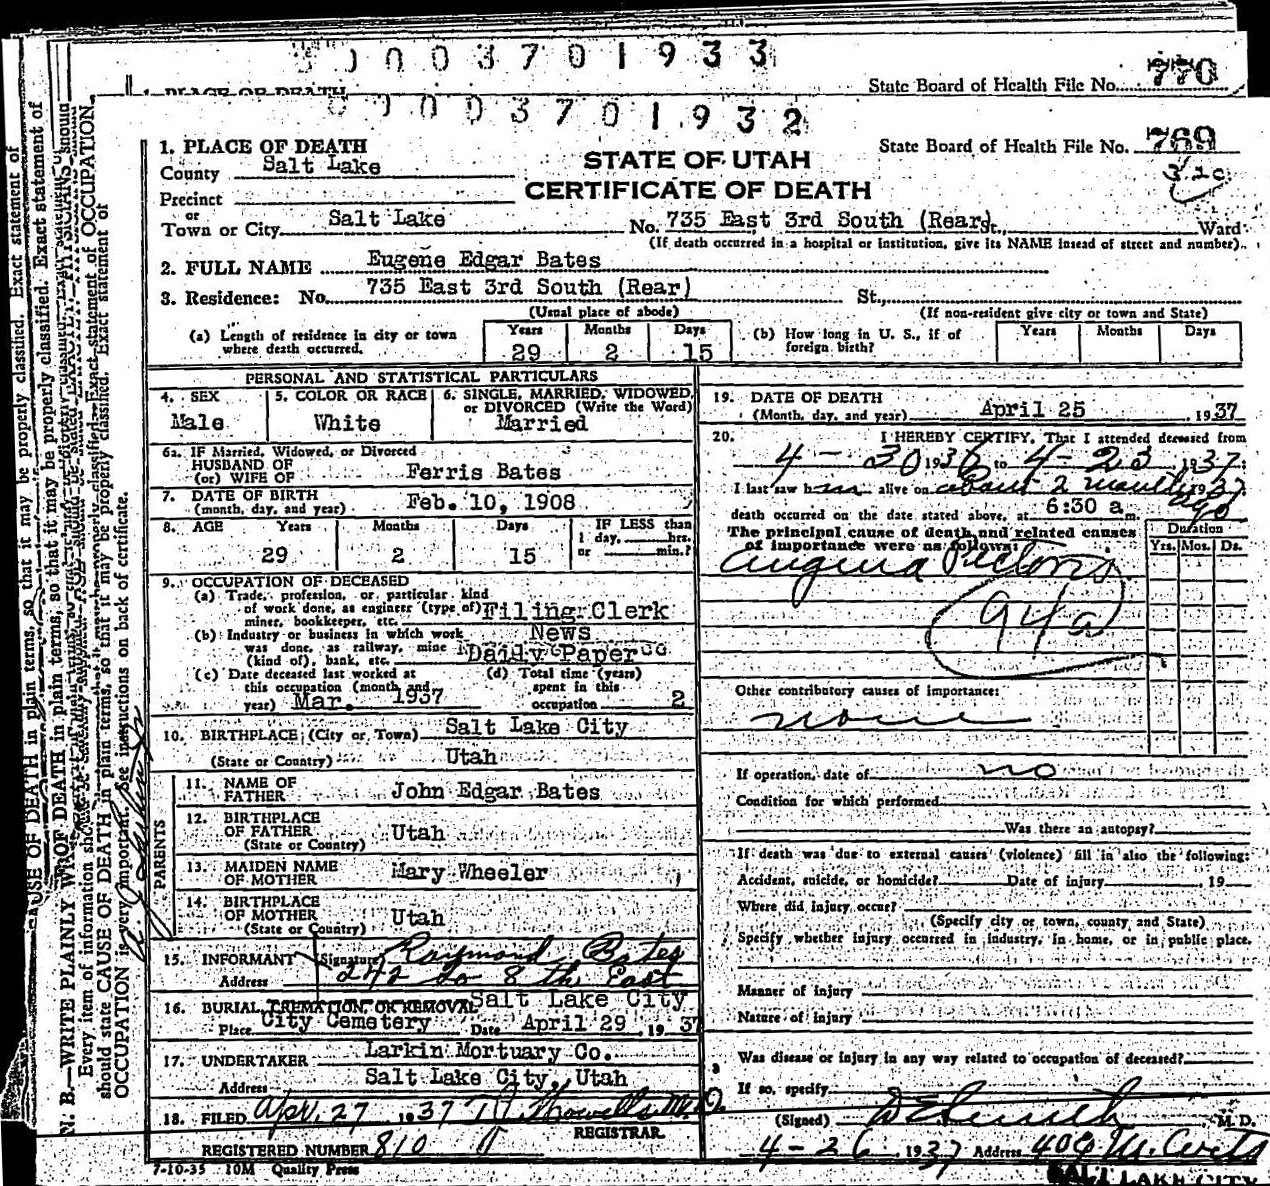 0003701933
State Board of Health File No. 770
1. PLACE OF DEATH
0003701932
State Board of Health File No. 769
320
STATE OF UTAH
CERTIFICATE OF DEATH
1. PLACE OF DEATH
County Salt Lake
Precinct
or
Town or City Salt Lake No. 735 East 3rd South (Rear) St., Ward
(If death occurred in a hospital or institution, give its NAME insead of street and number).
2. FULL NAME Eugene Edgar Bates
3. Residence: No. 735 East 3rd South (Rear) St.,
(Usual place of abode) (If non-resident give city or town and State)
(a) Length of residence in city or town where death occurred. Years 29 Months 2 Days 15
(b) How long in U. S., if of foreign birth? Years Months Days
PERSONAL AND STATISTICAL PARTICULARS
4. SEX Male
5. COLOR OR RACE White
6. SINGLE, MARRIED, WIDOWED, or DIVORCED (Write the Word) Married
6a. IF Married, Widowed, or Divorced
HUSBAND OF
(or) WIFE OF Ferris Bates
7. DATE OF BIRTH
(month, day, and year) Feb. 10, 1908
8. AGE Years 29 Months 2 Days 15 IF LESS than 1 day, hrs. or min.?
9. OCCUPATION OF DECEASED
(a) Trade, profession, or particular kind of work done, as engineer (type of) miner, bookkeeper, etc. Filing Clerk
(b) Industry or business in which work was done, as railway, mine (kind of), bank, etc. News
Daily Paper
(c) Date deceased last worked at this occupation (month and year) Mar. 1937
(d) Total time (years) spent in this occupation 2
10. BIRTHPLACE (City or Town) Salt Lake City
(State or Country) Utah
PARENTS
11. NAME OF FATHER John Edgar Bates
12. BIRTHPLACE OF FATHER Utah
(State or Country)
13. MAIDEN NAME OF MOTHER Mary Wheeler
14. BIRTHPLACE OF MOTHER Utah
(State or Country)
15. INFORMANT (Signature) Raymond Bates
Address 242 So 8th East
16. BURIAL, CREMATION, OR REMOVAL Salt Lake City
Place City Cemetery Date April 29 1937
17. UNDERTAKER Larkin Mortuary Co.
Address Salt Lake City, Utah
18. FILED Apr. 27 1937 M.D.
REGISTRAR
REGISTERED NUMBER 810
7-10-35 10M Quality Press
19. DATE OF DEATH
(Month, day, and year) April 25, 1937
20. I HEREBY CERTIFY, That I attended deceased from
4-30 1936 to 4-23 1937
I last saw him alive on about 2 months ago 1937
death occurred on the date stated above, at 6:30 a m.
The principal cause of death and related causes of importance were as follows: Duration
Yrs. Mos. Ds.
Angina Pectoris
94a
Other contributory causes of importance:
none
If operation, date of no
Condition for which performed
Was there an autopsy?
If death was due to external causes (violence) fill in also the following:
Accident, suicide, or homicide? Date of injury , 19
Where did injury occur?
(Specify city or town, county and State)
Specify whether injury occurred in industry, in home, or in public place.
Manner of injury
Nature of injury
Was disease or injury in any way related to occupation of deceased?
If so, specify
(Signed) M. D.
4-26, 1937 Address 408 M. Arts
SALT LAKE CITY
N. B.—WRITE PLAINLY
Every item of information
should state CAUSE OF DEATH in plain terms, so that it may be properly classified. Exact statement of
OCCUPATION is very important. See instructions on back of certificate.